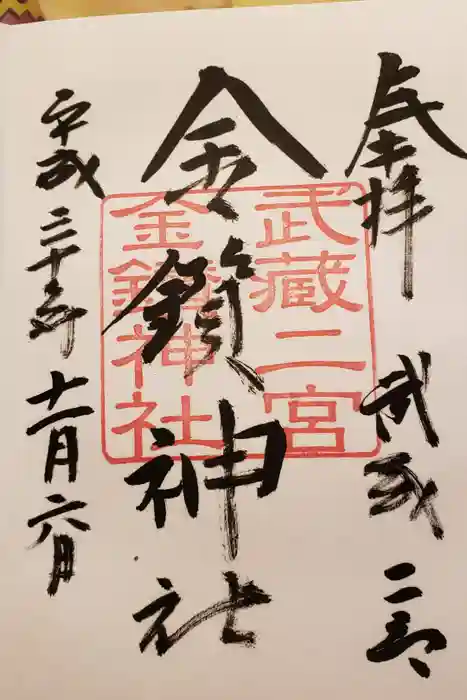 奉拝
武蔵二宮
金鑚神社
武蔵二宮
金鑚神社
平成三十年
十一月六日